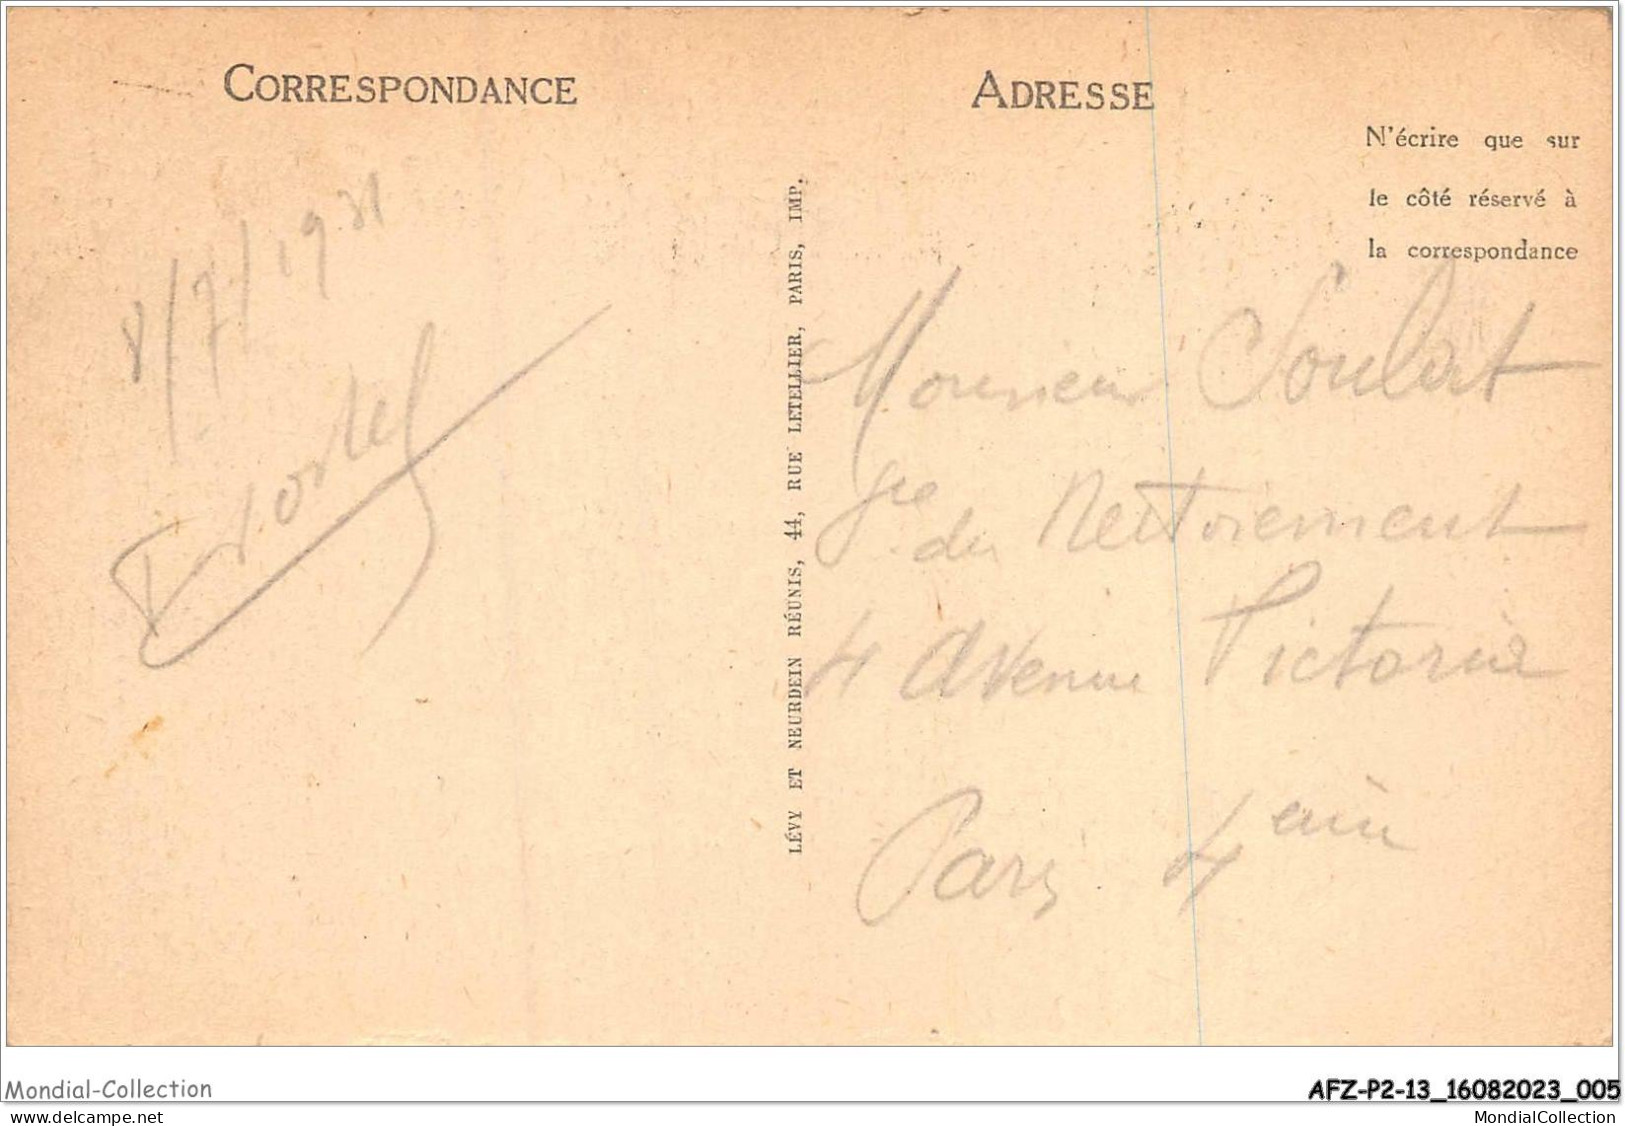 CORRESPONDANCE
ADRESSE
N'écrire que sur
le côté réservé à
la correspondance
8/7/1921
LÉVY ET NEURDEIN RÉUNIS, 44, RUE LETELLIER, PARIS, IMP.
Monsieur Soulat
du Nettoiement
4 Avenue Victoria
Paris 4
Mondial-Collection
www.delcampe.net
AFZ-P2-13_16082023_005
MondialCollection